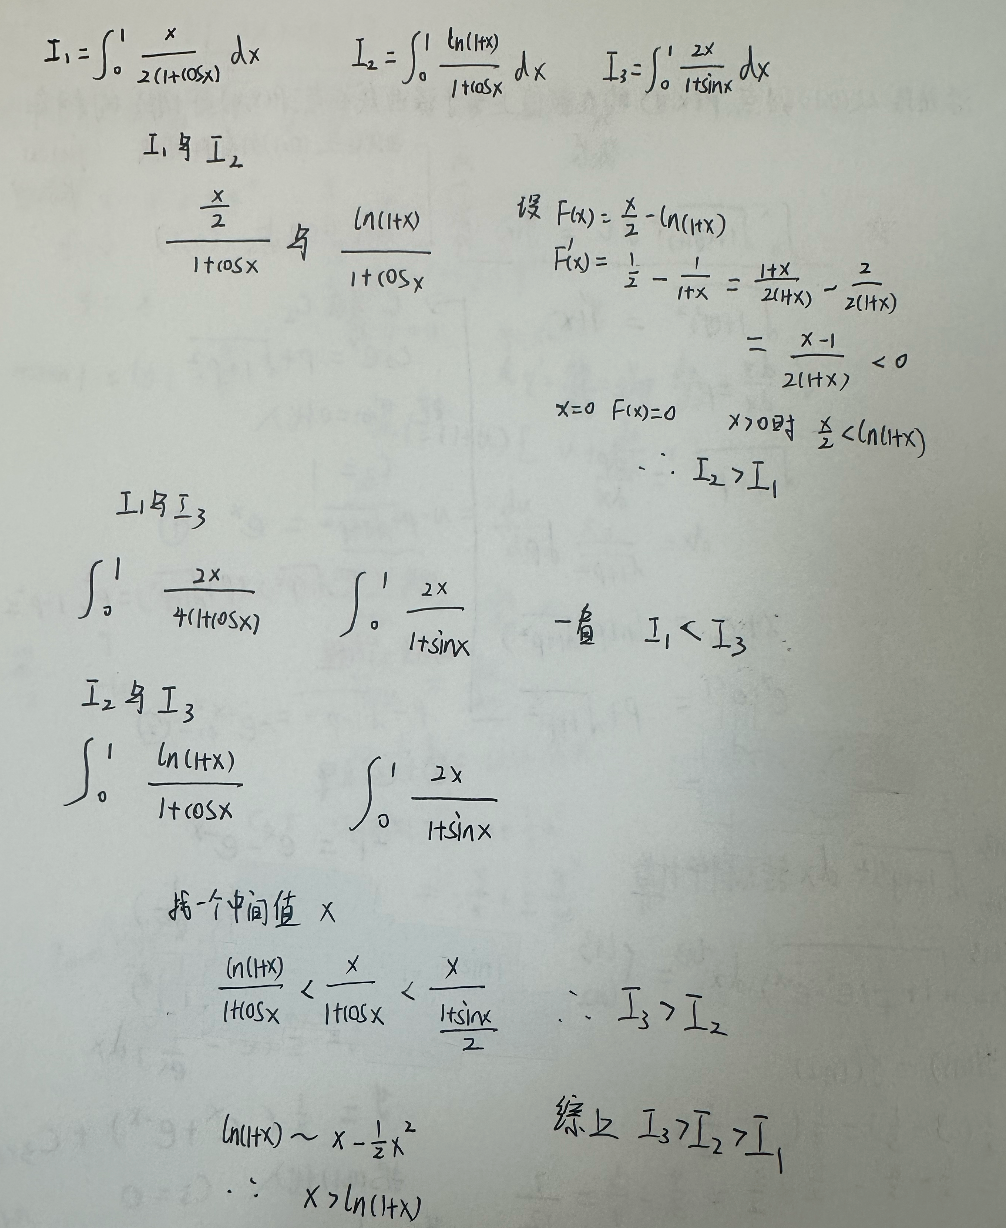 I₁=∫₀¹ x/(2(1+cosx)) dx I₂=∫₀¹ ln(1+x)/(1+cosx) dx I₃=∫₀¹ 2x/(1+sinx) dx
I₁与I₂
(x/2)/(1+cosx) 与 ln(1+x)/(1+cosx)
设 F(x)=x/2-ln(1+x)
F'(x)=1/2-1/(1+x)=(1+x)/(2(1+x))-2/(2(1+x))
=(x-1)/(2(1+x))<0
x=0 F(x)=0 x>0时 x/2<ln(1+x)
∴ I₂>I₁
I₁与I₃
∫₀¹ 2x/(4(1+cosx)) ∫₀¹ 2x/(1+sinx) 一眉 I₁<I₃
I₂与I₃
∫₀¹ ln(1+x)/(1+cosx) ∫₀¹ 2x/(1+sinx)
找一个中间值 x
ln(1+x)/(1+cosx)<x/(1+cosx)<x/((1+sinx)/2) ∴ I₃>I₂
ln(1+x)~x-½x² 综上 I₃>I₂>I₁
∴ x>ln(1+x)